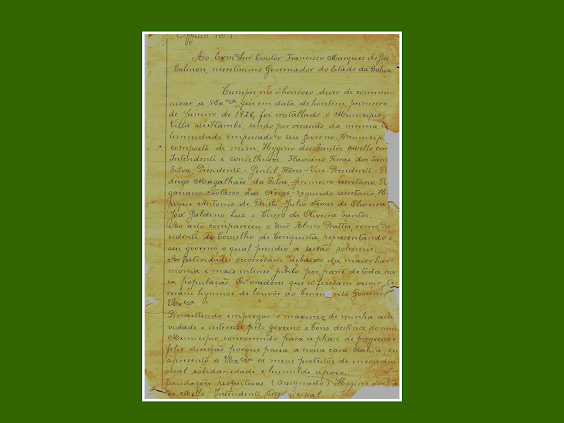 Officio Nº 1
Ao Exmº Snr. Doutor Francisco Marques de Góes
Calmon, meretissimo Governador do Estado da Bahia
Cumpre-me o honroso dever de commu-
nicar a V. Excia que em data de hontem, primeiro
de Janeiro de 1926 foi installado o Municipio,
Villa de Itambé, sendo por occasião da mesma
empossado o seu governo Municipal
composto de mim, Hygino dos Santos Mello como
Intendente e conselheiros: Flaviano Ferraz dos San
Silva Presidente - Gentil Flores - Vice-Presidente - R
drigo Magalhães da Silva - primeiro secretario,
das Neves - segundo secretario, He
rique Antonio de Brito, Julio Gomes de Oliveira,
José Galdino Luz e Cicero de Oliveira Santos.
Ao acto compareceu o Snr. como Pre
sidente do Conselho de Conquista, representando o
seu governo o qual presidio a sessão solemne.
As festividades occorreram debaixo da maior har
monia e mais intimo jubilo por parte de toda no
sa população. Os oradores que se fizeram ouvir te
ceram hymnos de louvôr ao Governo
V. Excia
Promettendo empregar o maximo de minha acti
vidade e interesse pelo governo e bons destinos do meu
Municipio, concorrendo para a phase de progresso e
feliz direcção porque passa a nossa cara Bahia, eu
apresento a V. Excia os meus protestos de incondi
cional solidariedade e humilde apoio.
Saudações respeitosas. (Assignado) Hygino dos
Mello, Intendente Municipal